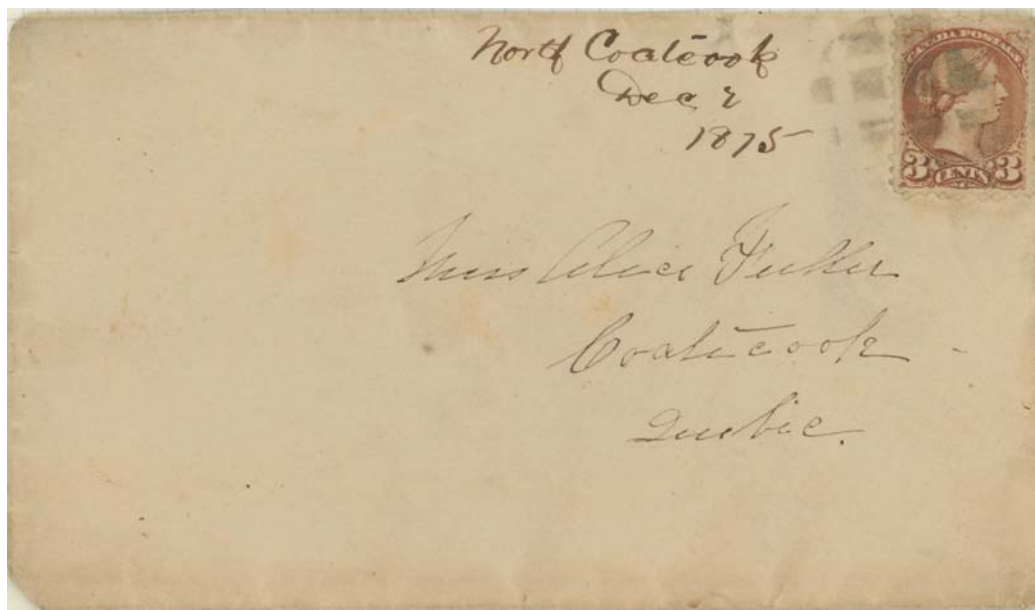 North Coaticook
Dec 2
1875
CANADA POSTAGE
3 CENTS 3
Miss Alice
Coaticook
Quebec.